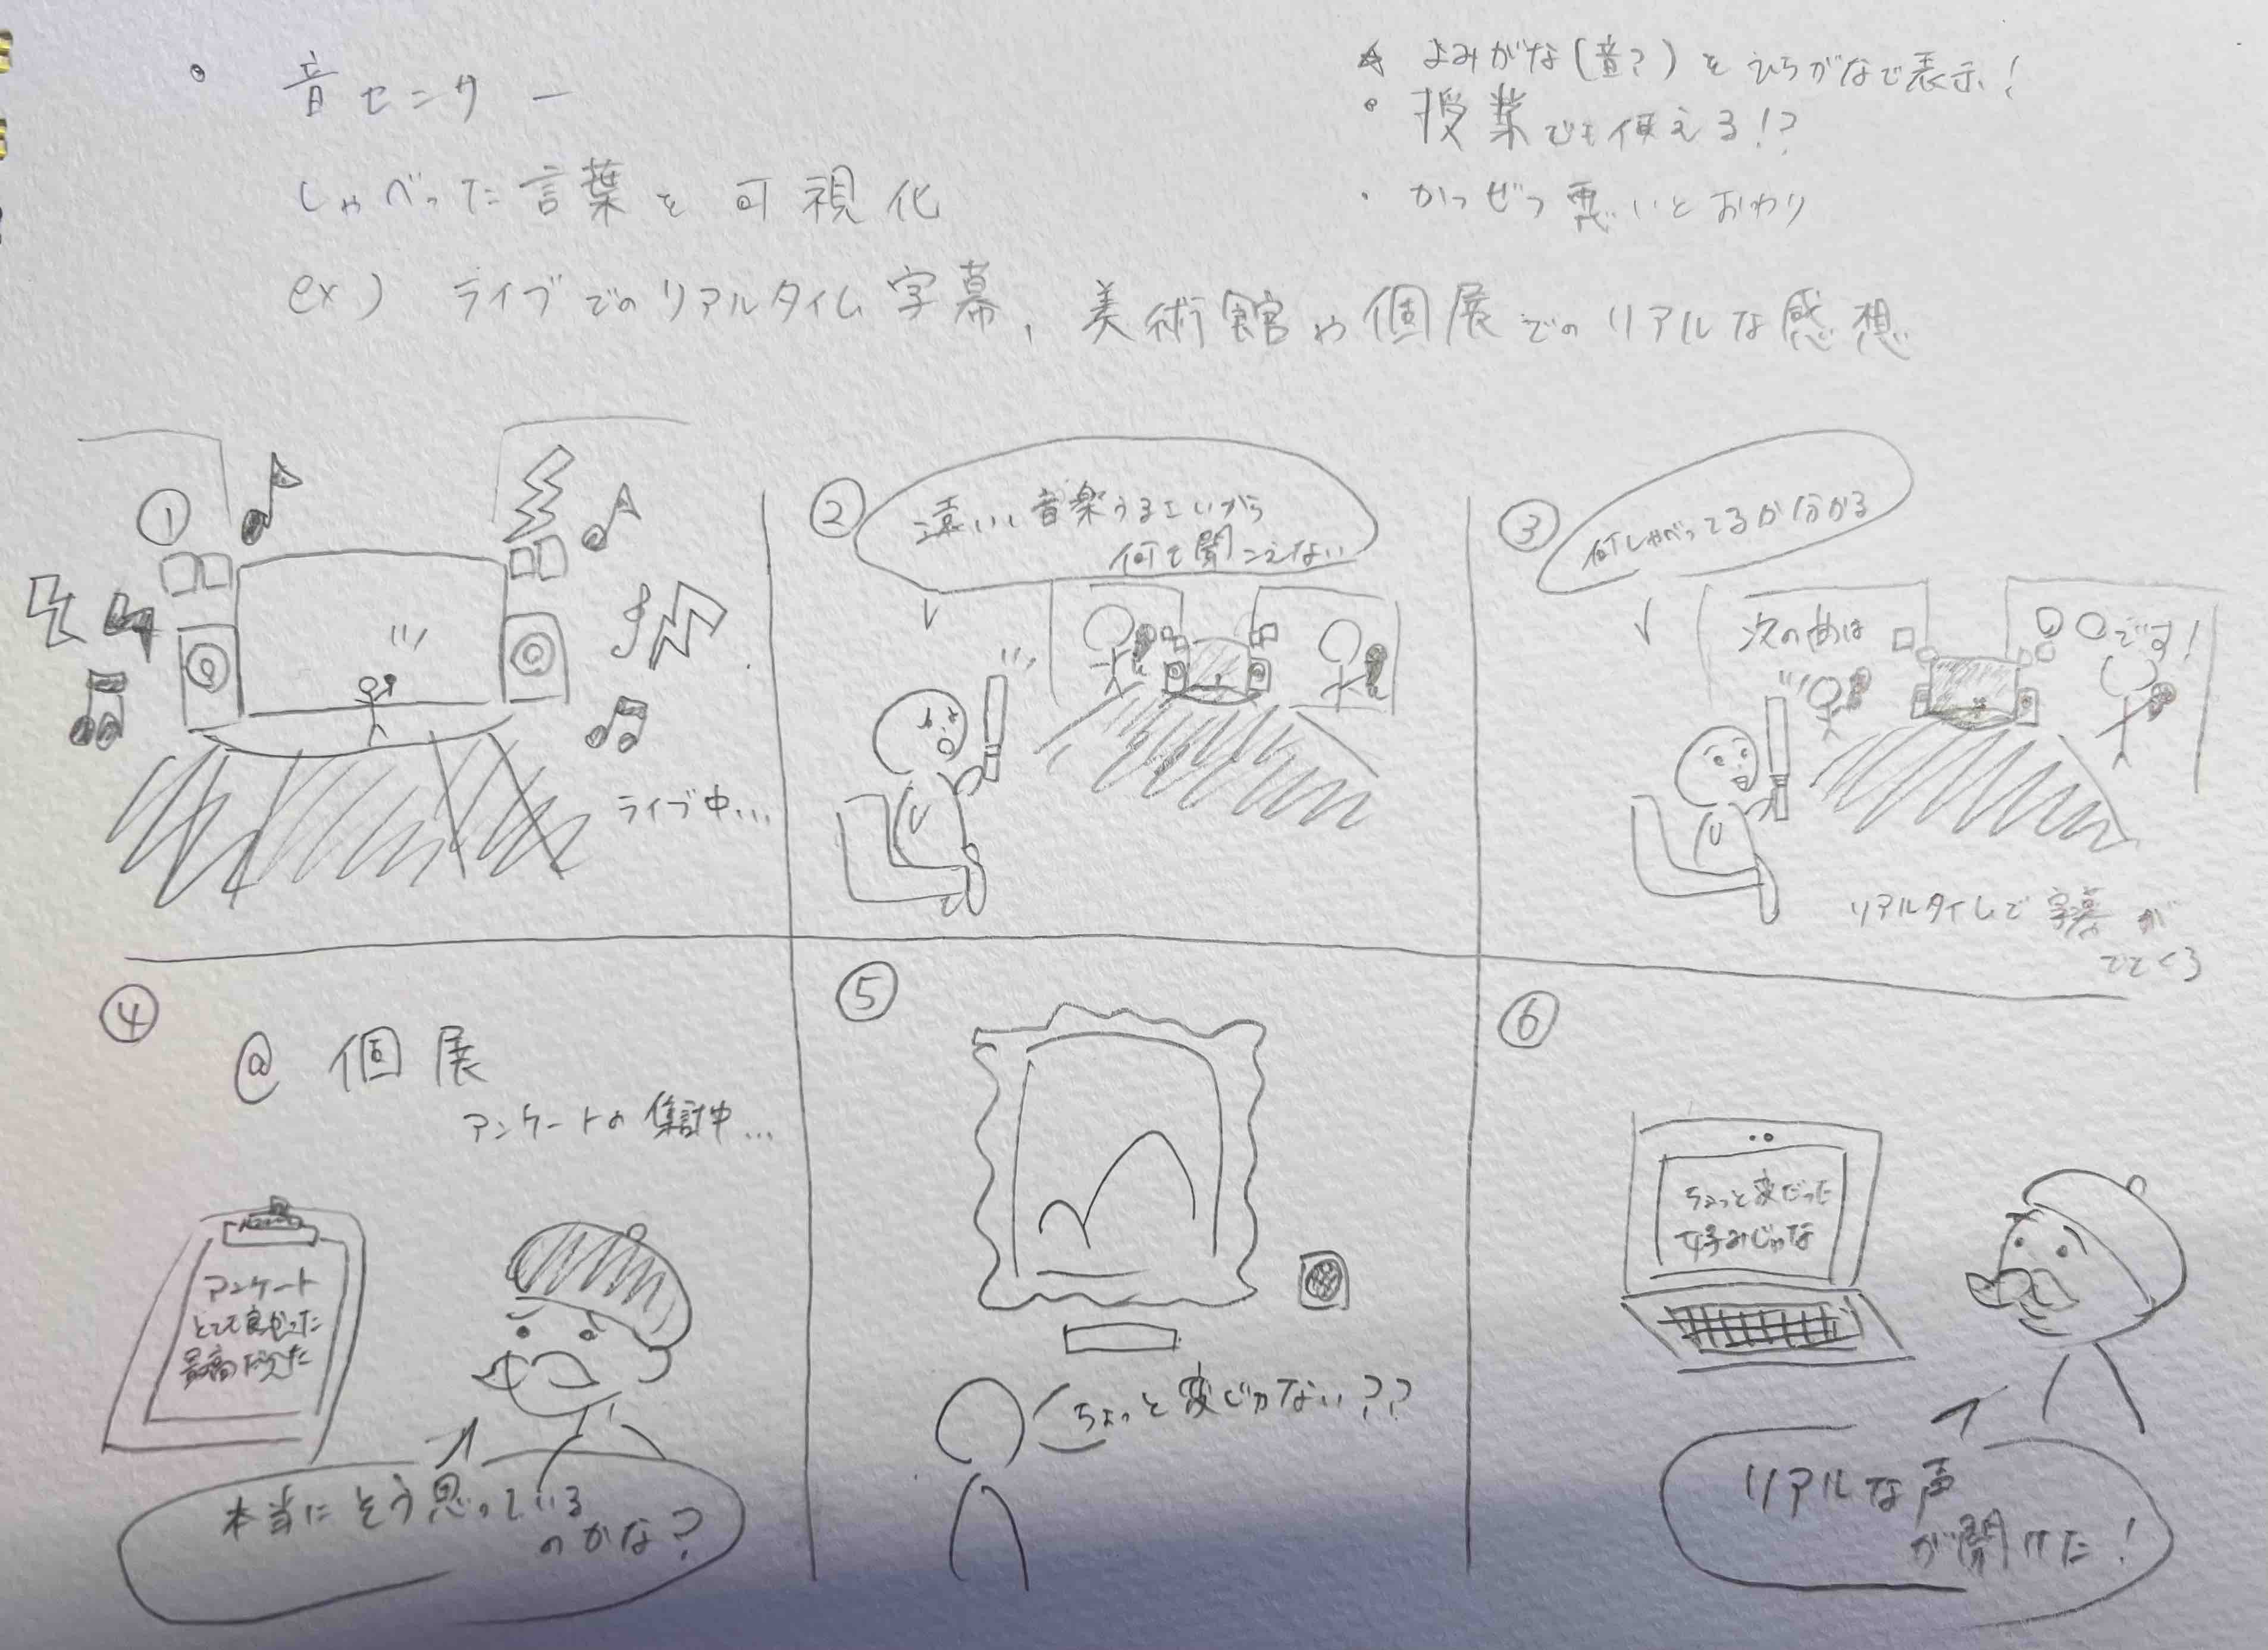 ・ 音センサー
しゃべった言葉を可視化
ex) ライブでのリアルタイム字幕、美術館や個展でのリアルな感想
☆ よみがな(音?)をひらがなで表示!
・ 授業でも使える!?
・ かつぜつ悪いとおわり
①
ライブ中...
②
遠いし音楽うるさいから
何も聞こえない
③
何しゃべってるか分かる
次の曲は
〇〇です!
リアルタイムで字幕が
でてくる
④
@ 個展
アンケートの集計中...
アンケート
とても良かった
最高だった
本当にそう思っている
のかな?
⑤
ちょっと変じゃない??
⑥
ちょっと変だった
好みじゃな
リアルな声
が聞けた!